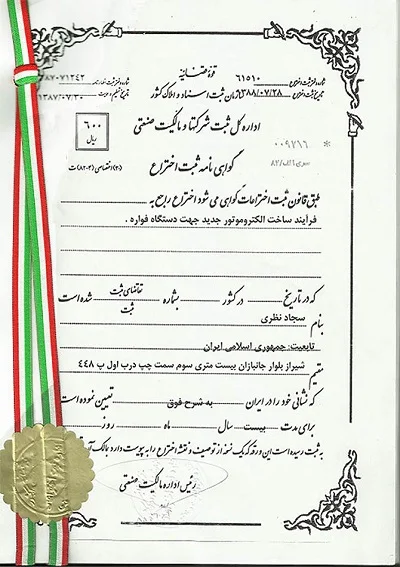 قوه قضائیه
شماره دفتر ثبت اختراع ۶۱۵۱۰
تاریخ ثبت اختراع ۱۳۸۸/۰۷/۲۸
سازمان ثبت اسناد و املاک کشور
۳۸۷۰۷۱۲۴۲
۱۳۸۷/۰۷/۳۰
اداره کل ثبت شرکتها و مالکیت صنعتی
۶۰۰
ریال
۰۰۹۷۱۶
*
گواهی نامه ثبت اختراع
سری ۱الف/۸۲
طبق قانون ثبت اختراعات گواهی می شود اختراع راجع به
فرآیند ساخت الکتروموتور جدید جهت دستگاه فواره .
که در تاریخ در کشور بشماره تقاضای ثبت شده است
ثبت
بنام سجاد نظری
تابعیت: جمهوری اسلامی ایران
مقیم شیراز بلوار جانبازان بیست متری سوم سمت چپ درب اول پ ۴۴۸
که نشانی خود را در ایران به شرح فوق تعیین نموده است
برای مدت بیست سال ماه روز
به ثبت رسیده است این ورقه که یک نسخه از توصیف و نقشه اختراع را به پیوست دارد بمالک
رئیس اداره مالکیت صنعتی